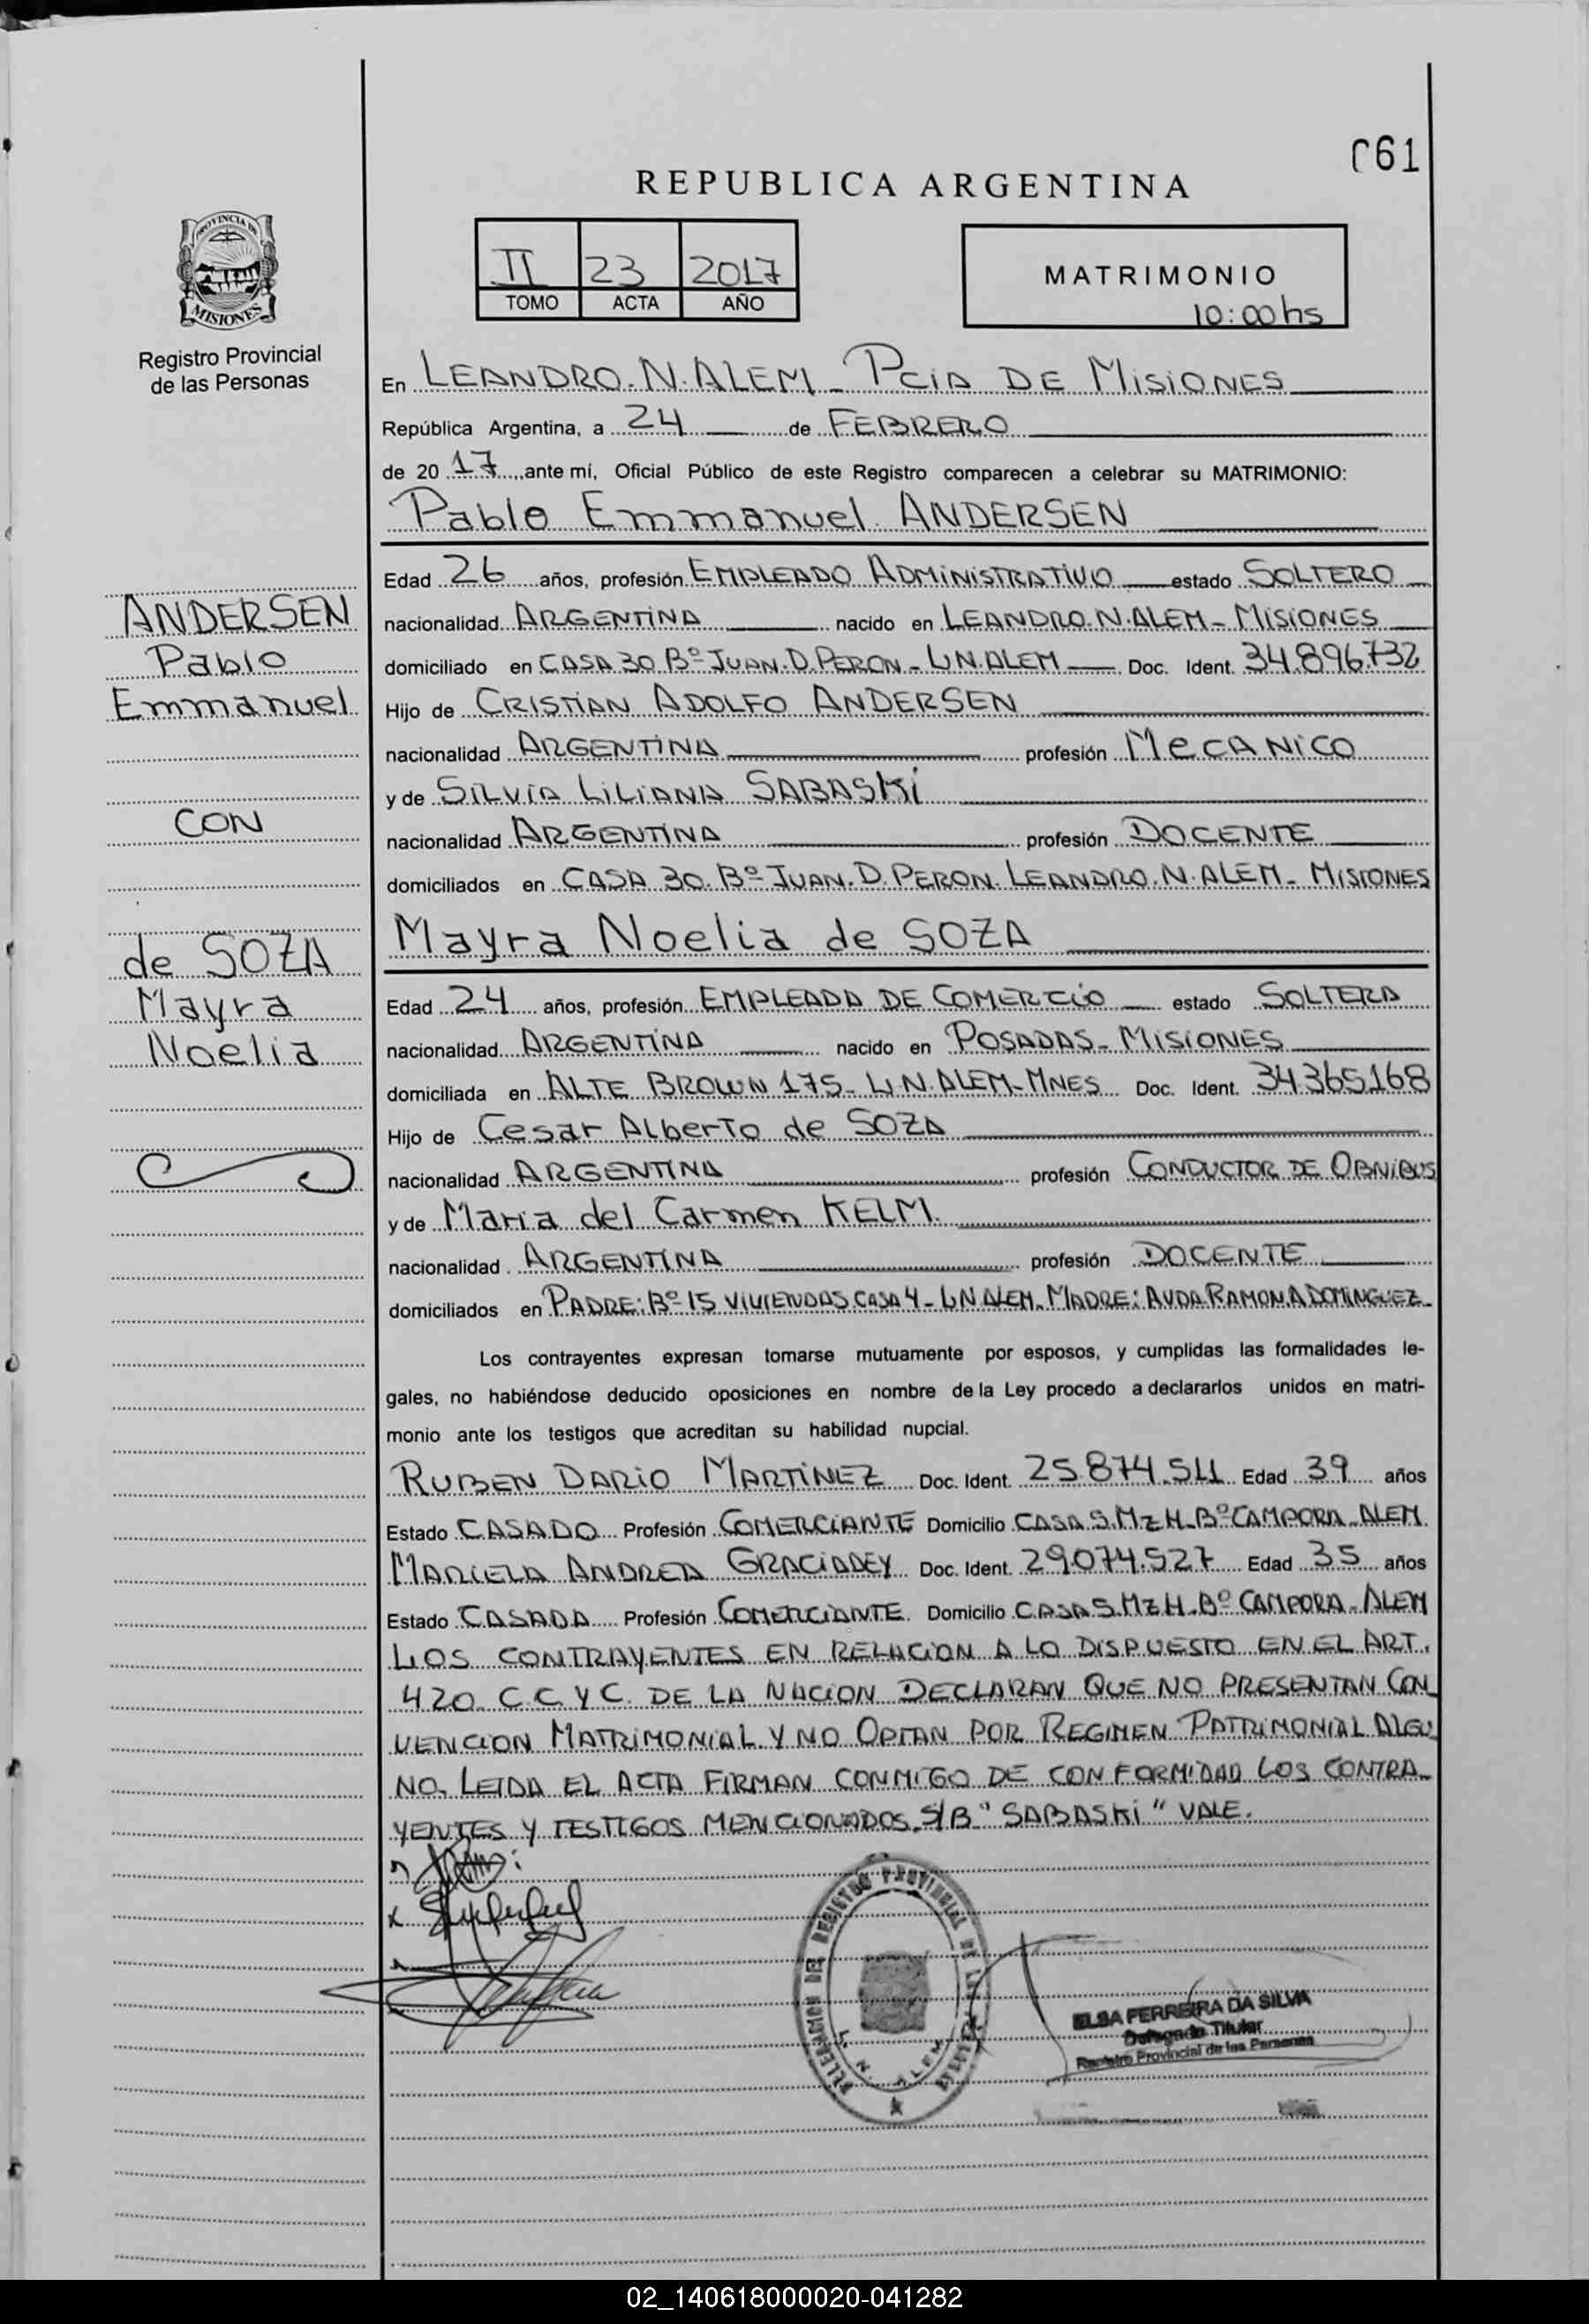 C61
REPUBLICA ARGENTINA
PROVINCIA DE
MISIONES
Registro Provincial
de las Personas
II 23 2017
TOMO ACTA AÑO
MATRIMONIO
10:00hs
En LEANDRO.N.ALEM_ Pcia DE MISIONES
República Argentina, a 24 de FEBRERO
de 20 17 ,ante mí, Oficial Público de este Registro comparecen a celebrar su MATRIMONIO:
Pablo Emmanuel ANDERSEN
Edad 26 años, profesión EMPLEADO ADMINISTRATIVO estado SOLTERO
nacionalidad ARGENTINA nacido en LEANDRO.N.ALEM_ MISIONES
domiciliado en CASA 30.Bº JUAN.D.PERON_ L.N.ALEM Doc. Ident. 34.896.732
Hijo de CRISTIAN ADOLFO ANDERSEN
nacionalidad ARGENTINA profesión MECANICO
y de SILVIA LILIANA SABASKI
nacionalidad ARGENTINA profesión DOCENTE
domiciliados en CASA 30.Bº JUAN.D.PERON. LEANDRO.N.ALEM_ MISIONES
ANDERSEN
Pablo
Emmanuel
CON
de SOZA
Mayra
Noelia
Mayra Noelia de SOZA
Edad 24 años, profesión EMPLEADA DE COMERCIO estado SOLTERA
nacionalidad ARGENTINA nacido en POSADAS_ MISIONES
domiciliada en ALTE BROWN 175_ L.N.ALEM_MNES Doc. Ident. 34.365.168
Hijo de Cesar Alberto de SOZA
nacionalidad ARGENTINA profesión CONDUCTOR DE OBNIBUS
y de Maria del Carmen KELM.
nacionalidad ARGENTINA profesión DOCENTE
domiciliados en PADRE: Bº 15 VIVIENDAS CASA 4_ L.N.ALEM_ MADRE: AVDA RAMON.A.DOMINGUEZ_
Los contrayentes expresan tomarse mutuamente por esposos, y cumplidas las formalidades le-
gales, no habiéndose deducido oposiciones en nombre de la Ley procedo a declararlos unidos en matri-
monio ante los testigos que acreditan su habilidad nupcial.
RUBEN DARIO MARTINEZ Doc. Ident. 25.874.511 Edad 39 años
Estado CASADO Profesión COMERCIANTE Domicilio CASA 9.MZ H_Bº CAMPORA_ALEM
MARIELA ANDREA GRACIADEY Doc. Ident. 29.074.527 Edad 35 años
Estado CASADA Profesión COMERCIANTE. Domicilio CASA 9.MZ H_Bº CAMPORA_ALEM
LOS CONTRAYENTES EN RELACION A LO DISPUESTO EN EL ART.
420. C.C.Y C. DE LA NACION DECLARAN QUE NO PRESENTAN CON_
VENCION MATRIMONIAL Y NO OPTAN POR REGIMEN PATRIMONIAL ALGU_
NO. LEIDA EL ACTA FIRMAN CONMIGO DE CONFORMIDAD LOS CONTRA_
YENTES Y TESTIGOS MENCIONADOS. S/B "SABASKI" VALE.
DELEGACION DEL REGISTRO PROVINCIAL DE LAS
L. N. ALEM
ELSA FERREIRA DA SILVA
Delegada Titular
Registro Provincial de las Personas
02_140618000020-041282